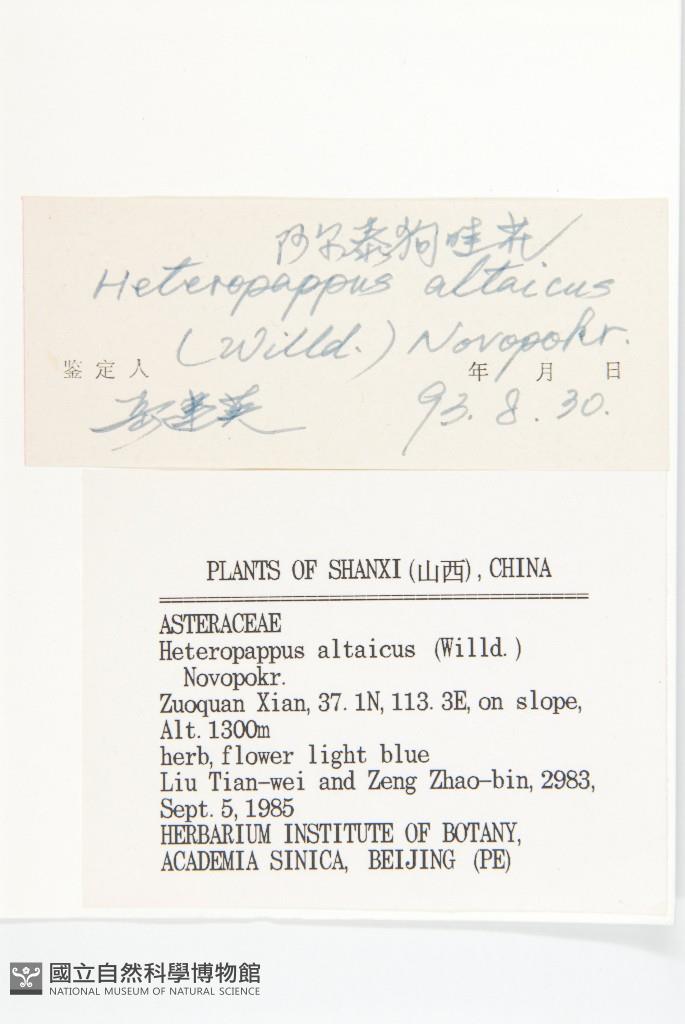 阿尔泰狗哇花
Heteropappus altaicus
(Willd.) Novopokr.
鉴定人 年 月 日
93.8.30.
PLANTS OF SHANXI(山西), CHINA
ASTERACEAE
Heteropappus altaicus (Willd.)
Novopokr.
Zuoquan Xian, 37.1N, 113.3E, on slope,
Alt. 1300m
herb, flower light blue
Liu Tian-wei and Zeng Zhao-bin, 2983,
Sept. 5, 1985
HERBARIUM INSTITUTE OF BOTANY,
ACADEMIA SINICA, BEIJING (PE)
國立自然科學博物館
NATIONAL MUSEUM OF NATURAL SCIENCE